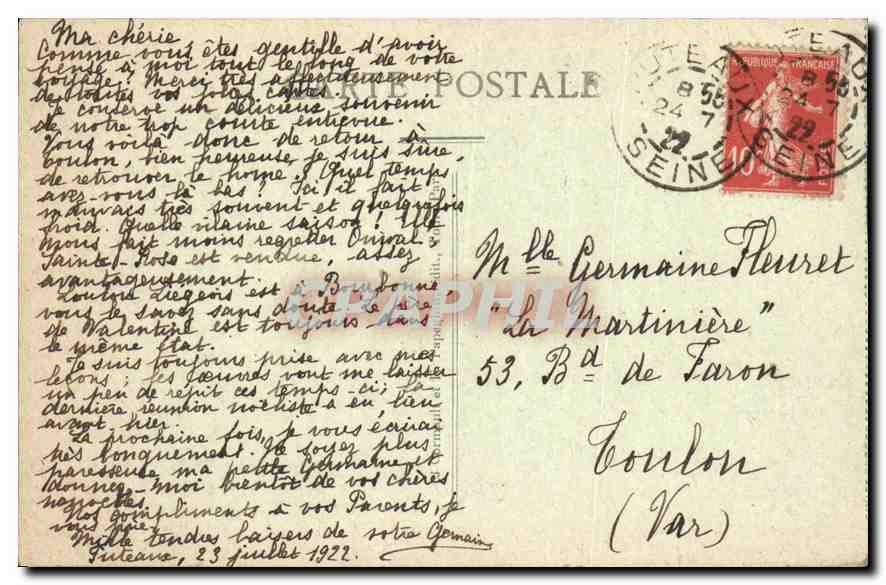 Ma chérie,
Comme vous êtes gentille d'avoir
pensé à moi tout le long de votre
voyage! Merci très affectueusement
de toutes vos jolies cartes.
Je conserve un délicieux souvenir
de notre trop courte entrevue.
Vous voilà donc de retour à
Toulon, bien heureuse, je suis sûre,
de retrouver le home. Quel temps
avez-vous là-bas? Ici il fait
mauvais très souvent et quelquefois
froid. Quelle vilaine saison! Elle
nous fait moins regretter Onival.
Sainte-Rose est vendue, assez
avantageusement.
Loulou Liégeois est à Bourbonne
vous le savez sans doute. Le père
de Valentine est toujours dans
le même état.
Je suis toujours prise avec mes
leçons; les œuvres vont me laisser
un peu de répit ces temps-ci; la
dernière réunion noëliste a eu lieu
avant-hier.
La prochaine fois, je vous écrirai
très longuement. Ne soyez plus
paresseuse ma petite Germaine et
donnez-moi bientôt de vos chères
nouvelles.
Nos compliments à vos Parents, je
vous prie.
Mille tendres baisers de votre Germaine
Puteaux, 23 juillet 1922.
CARTE POSTALE
PUTEAUX
8 55
24 7
22
SEINE
REPUBLIQUE FRANÇAISE
10
PUTEAUX
8 55
24 7
22
SEINE
Mlle Germaine Fleuret
"La Martinière"
53, Bd de Faron
Toulon
(Var)
CARPHIL